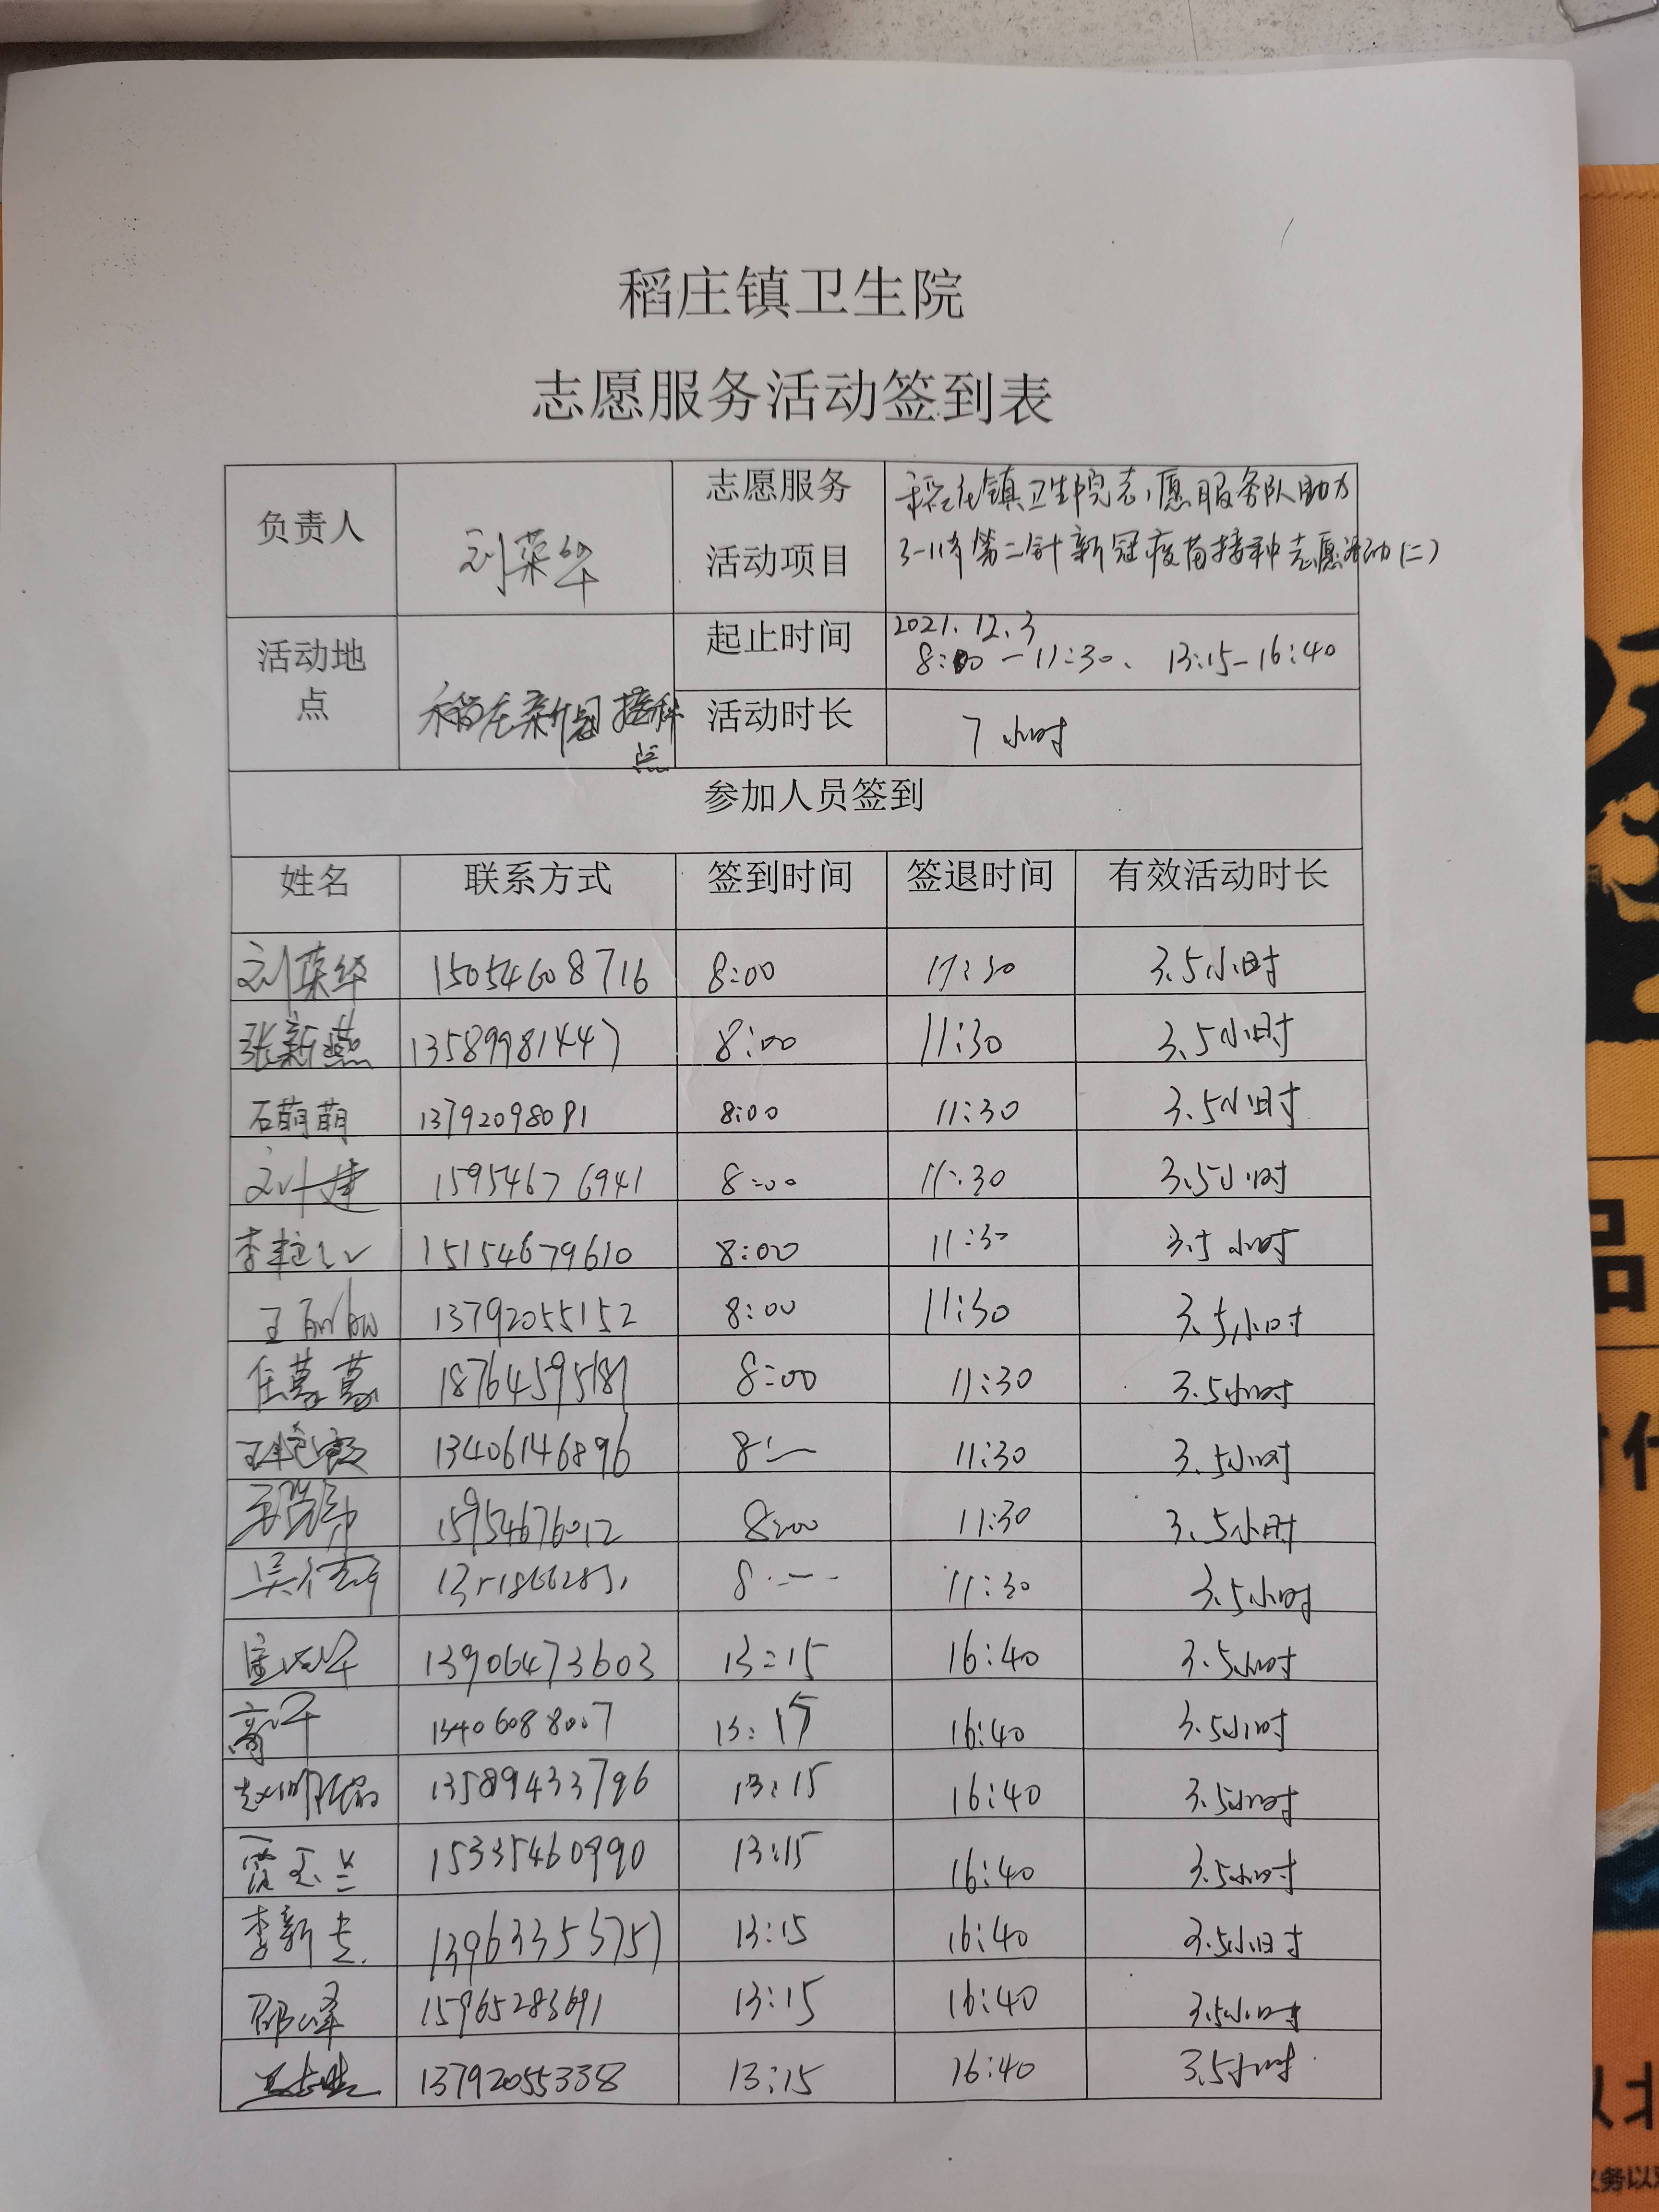 稻庄镇卫生院
志愿服务活动签到表
负责人 刘荣华 志愿服务活动项目 稻庄镇卫生院志愿服务队助力
3-11岁第二针新冠疫苗接种志愿活动(二)
活动地点 稻庄新冠接种点 起止时间 2021.12.3
8:00-11:30、 13:15-16:40
活动时长 7小时
参加人员签到
姓名 联系方式 签到时间 签退时间 有效活动时长
刘荣华 15054608716 8:00 11:30 3.5小时
张新燕 13589981447 8:00 11:30 3.5小时
石萌萌 13792098091 8:00 11:30 3.5小时
15954676941 8:00 11:30 3.5小时
15154679610 8:00 11:30 3.5小时
13792055152 8:00 11:30 3.5小时
任蔓蔓 18764595181 8:00 11:30 3.5小时
王艳霞 13406146896 8: 11:30 3.5小时
15954676012 8:00 11:30 3.5小时
8: 11:30 3.5小时
13906473603 13:15 16:40 3.5小时
13406088007 13:15 16:40 3.5小时
13589433796 13:15 16:40 3.5小时
贾玉兰 15335460990 13:15 16:40 3.5小时
李新 13963353757 13:15 16:40 3.5小时
邵峰 15965283691 13:15 16:40 3.5小时
13792055338 13:15 16:40 3.5小时
品
以北
务以